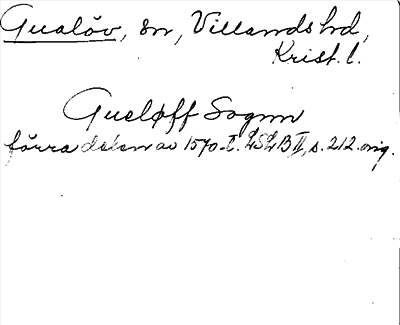 Gualöv, sn, Villands hd,
Krist. l.
Gueløff Sognn
förra delen av 1570-t. LSLB II, s. 212. orig.